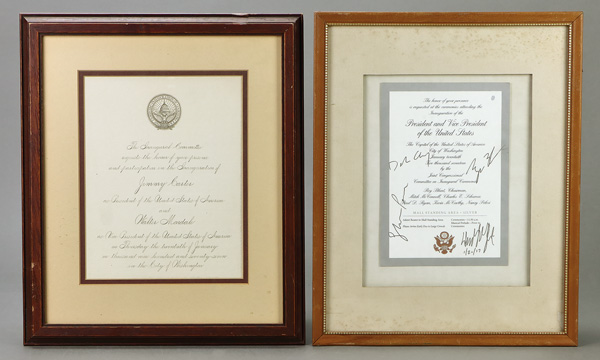 The Inaugural Committee
requests the honor of your presence
and participation in the Inauguration of
Jimmy Carter
as President of the United States of America
and
Walter Mondale
as Vice President of the United States of America
on Thursday the twentieth of January
one thousand nine hundred and seventy-seven
in the City of Washington
The honor of your presence
is requested at the ceremonies attending the
Inauguration of the
President and Vice President
of the United States
The Capitol of the United States of America
City of Washington
January twentieth
Two thousand seventeen
by the
Joint Congressional
Committee on Inaugural Ceremonies
Roy Blunt, Chairman
Mitch McConnell, Charles E. Schumer
Paul D. Ryan, Kevin McCarthy, Nancy Pelosi
MALL STANDING AREA